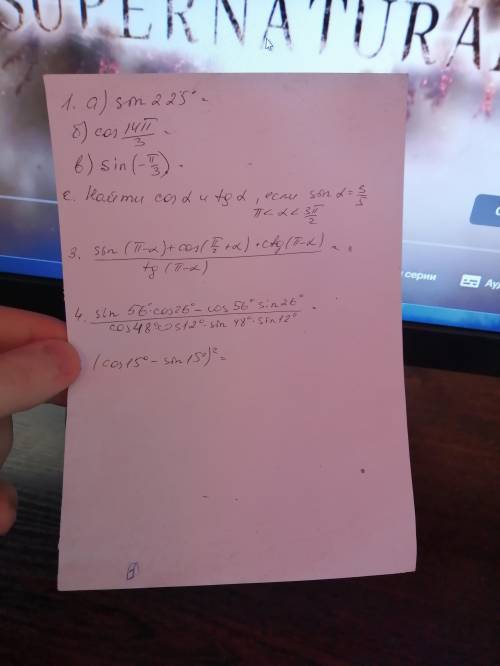 SUPERNATURA
1. а) sin 225° =
б) cos 14π/3 =
в) sin(-π/3) =
2. Найти cos α и tg α, если sin α = 3/5
π < α < 3π/2
3. sin(π-α) + cos(π/2 + α) + ctg(π-α) / tg(π-α) =
4. sin 56° · cos 26° - cos 56° sin 26° / cos 48° cos 12° - sin 48° · sin 12° =
(cos 15° - sin 15°)² =
серии
Ауд
В